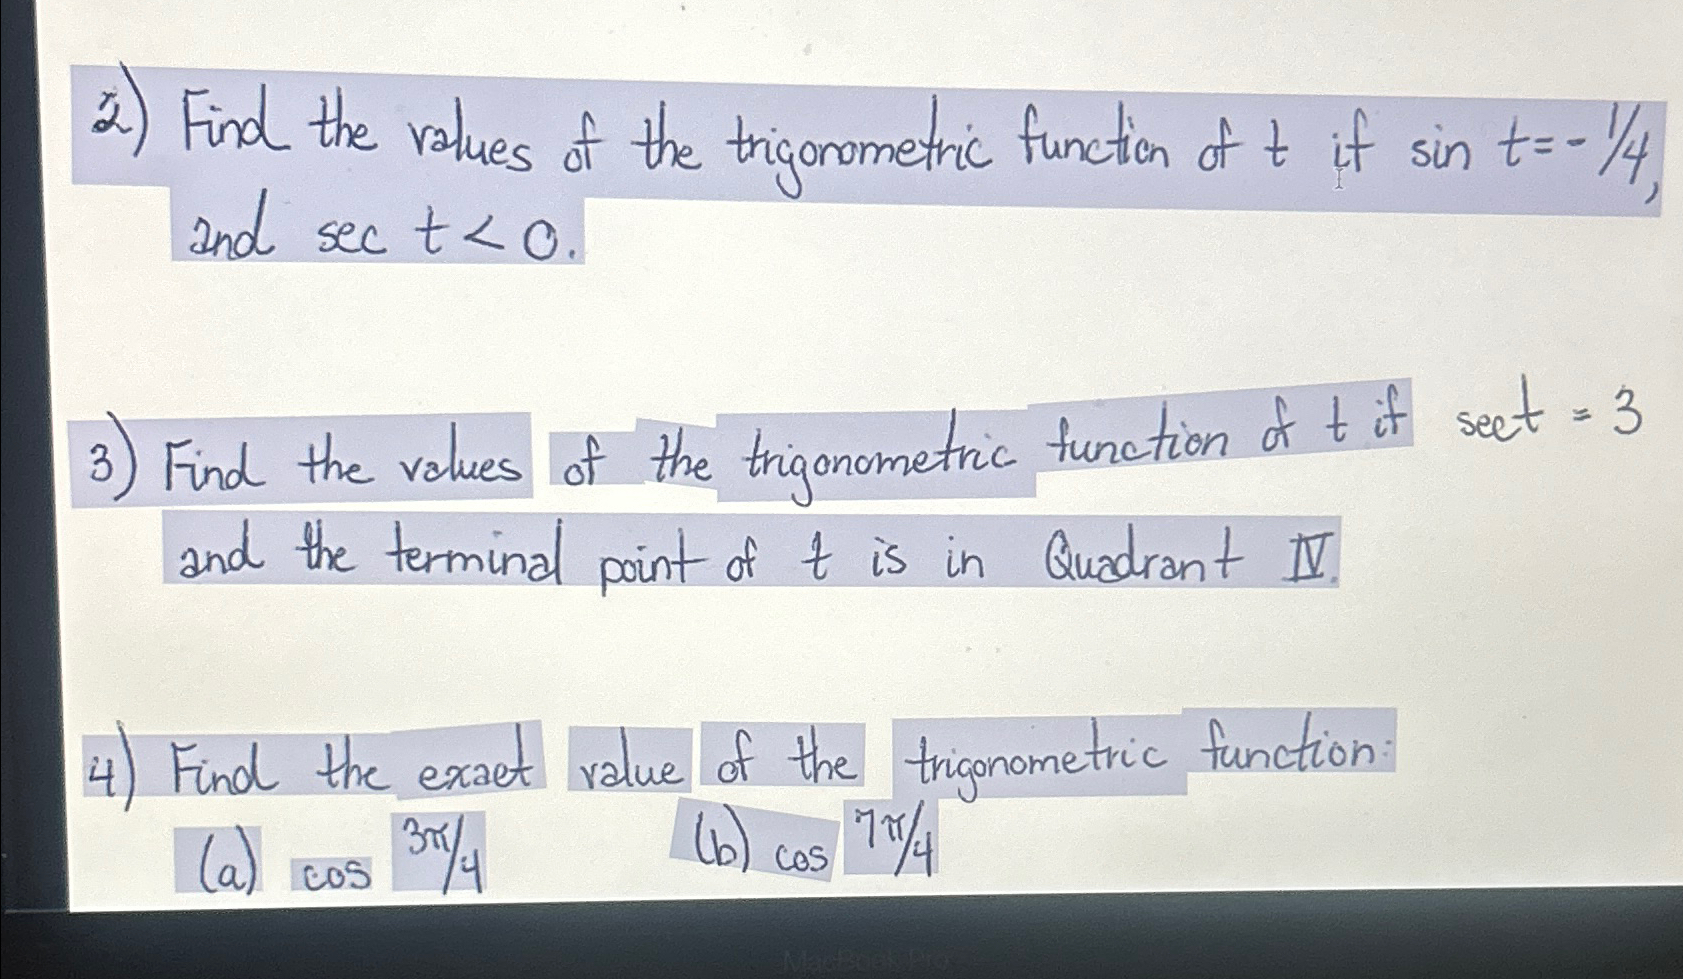 2) Find the values of the trigonometric function of t if sin t = - 1/4,
and sec t < 0.
3) Find the values of the trigonometric function of t if sec t = 3
and the terminal point of t is in Quadrant IV.
4) Find the exact value of the trigonometric function:
(a) cos 3π/4 (b) cos 7π/4
MacBook Pro